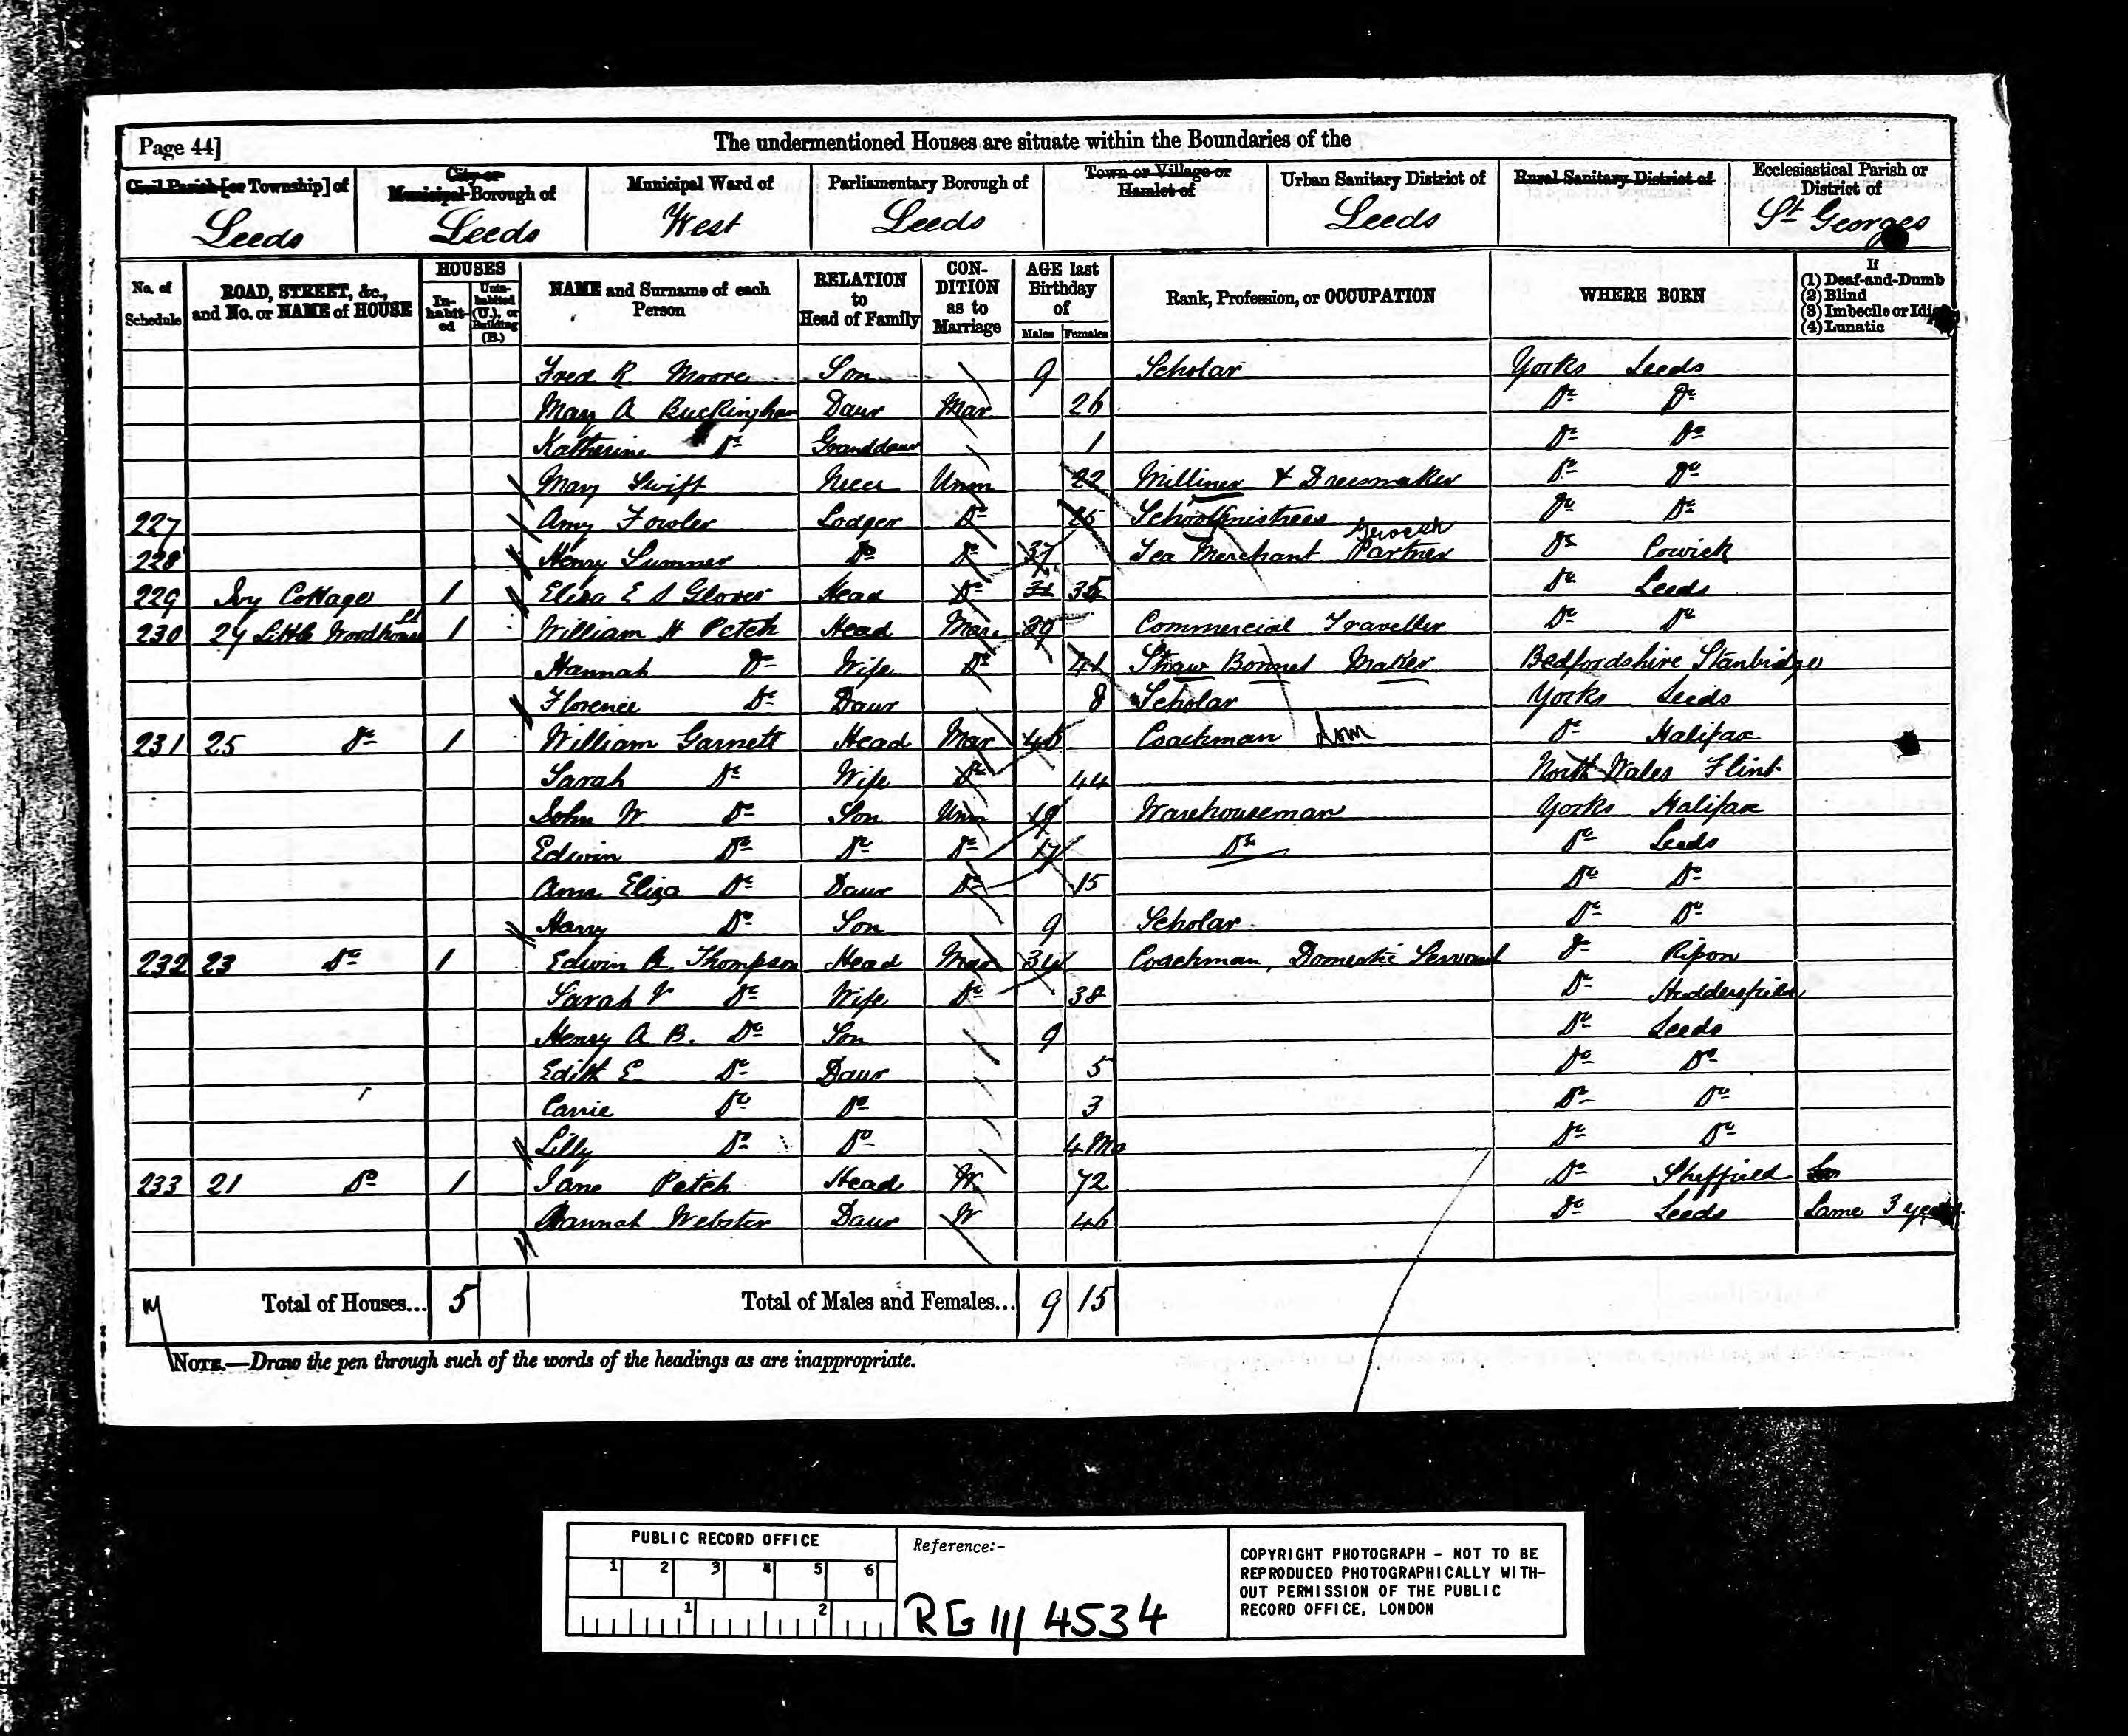 Page 44]
The undermentioned Houses are situate within the Boundaries of the
Civil Parish [or Township] of
City or Municipal Borough of
Municipal Ward of
Parliamentary Borough of
Town or Village or Hamlet of
Urban Sanitary District of
Rural Sanitary District of
Ecclesiastical Parish or District of
Leeds Leeds West Leeds Leeds St Georges
No. of Schedule
ROAD, STREET, &c., and No. or NAME of HOUSE
HOUSES
In-habit-ed
Unin-habited (U.), or Building (B.)
NAME and Surname of each Person
RELATION to Head of Family
CON-DITION as to Marriage
AGE last Birthday of
Males Females
Rank, Profession, or OCCUPATION
WHERE BORN
If
(1) Deaf-and-Dumb
(2) Blind
(3) Imbecile or Idi
(4) Lunatic
Fred R Moore Son 9 Scholar Yorks Leeds
Mary A Buckingham Daur Mar 26 Do Do
Katherine Do Granddaur 1 Do Do
Mary Swift Niece Unm 22 Milliner & Dressmaker Do Do
227 Amy Fowler Lodger Do 25 Schoolmistress Do Do
Grocer
228 Henry Sumner Do Do 37 Tea Merchant Partner Do Cowick
229 Ivy Cottage 1 Eliza E S Glover Head Do 35 Do Leeds
230 27 Little Woodhouse St 1 William H Petch Head Mar 39 Commercial Traveller Do Do
Hannah Do Wife Do 41 Straw Bonnet Maker Bedfordshire Stanbridge
Florence Do Daur 8 Scholar Yorks Leeds
231 25 Do 1 William Garnett Head Mar 46 Coachman Dom Do Halifax
Sarah Do Wife Do 44 North Wales Flint
John W Do Son Unm 19 Warehouseman Yorks Halifax
Edwin Do Do Do 17 Do Do Leeds
Ann Eliza Do Daur Do 15 Do Do
Harry Do Son 9 Scholar Do Do
232 23 Do 1 Edwin A. Thompson Head Mar 34 Coachman, Domestic Servant Do Ripon
Sarah V Do Wife Do 38 Do Huddersfield
Henry A B. Do Son 9 Do Leeds
Edith E. Do Daur 5 Do Do
Carrie Do Do 3 Do Do
Lilly Do Do 4 Mo Do Do
233 21 Do 1 Jane Petch Head W 72 Do Sheffield
Hannah Webster Daur W 46 Do Leeds Lame 3 years
Total of Houses... 5 Total of Males and Females... 9 15
NOTE.—Draw the pen through such of the words of the headings as are inappropriate.
PUBLIC RECORD OFFICE
1 2 3 4 5 6
1 2
Reference:-
RG 11/ 4534
COPYRIGHT PHOTOGRAPH - NOT TO BE
REPRODUCED PHOTOGRAPHICALLY WITH-
OUT PERMISSION OF THE PUBLIC
RECORD OFFICE, LONDON